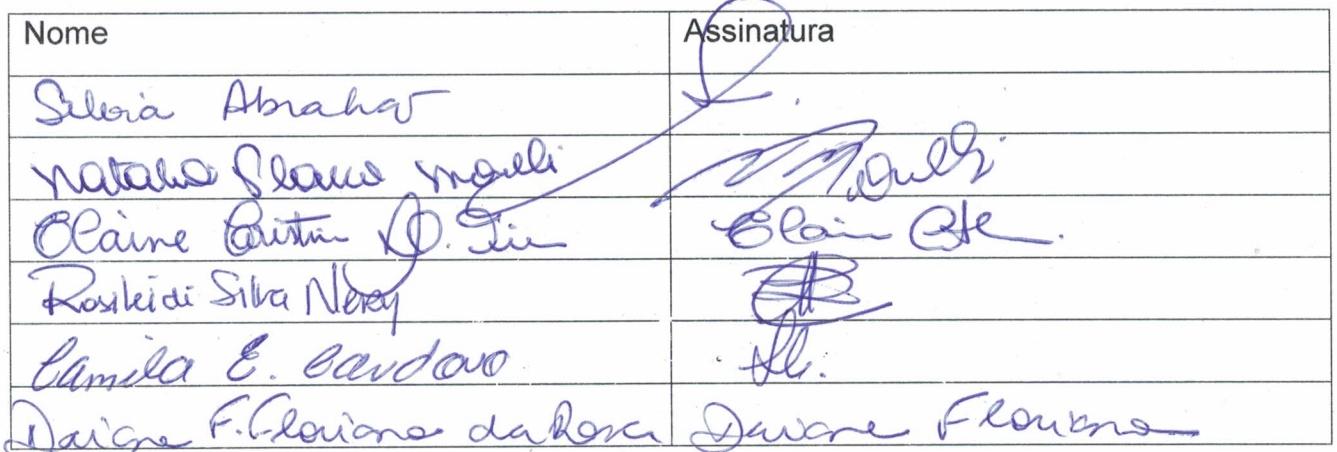 Nome Assinatura
Silvia Abrahão
Natalia
Elaine Cristin D. Elain
Rosileidi Silva Nery
Camila E. Cardoso
Daiane F. Floriano da Rosa Daiane Floriano